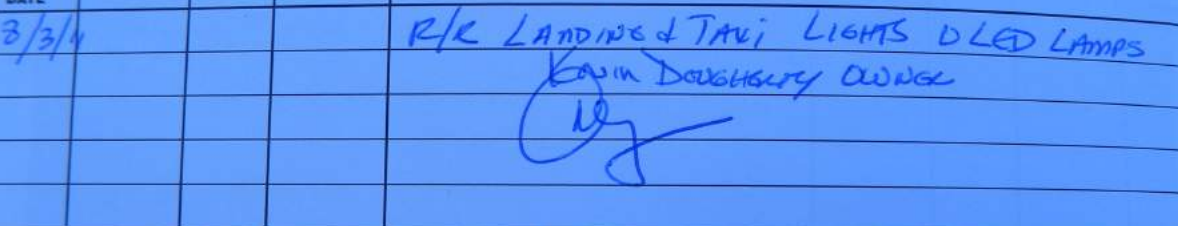 DATE
8/3/11 R/R LANDING & TAXI LIGHTS LED LAMPS
Kevin DOUGHERTY OWNER